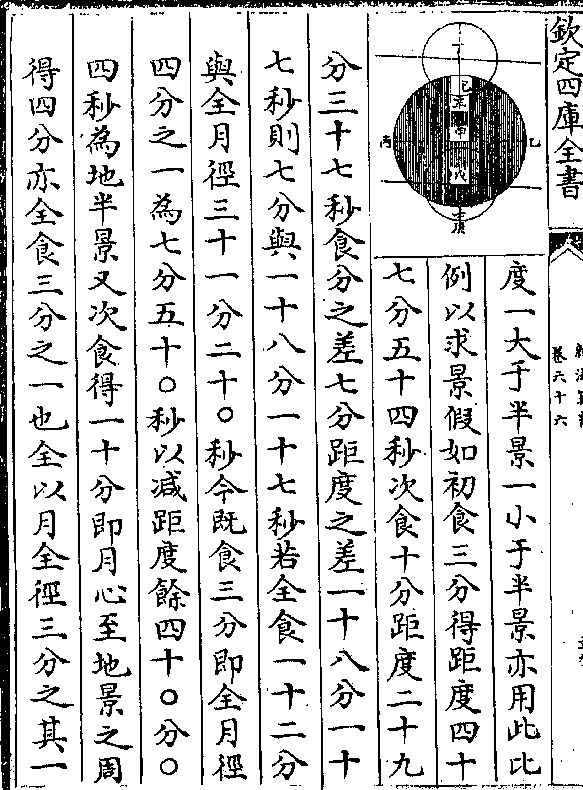 欽定四庫全書
卷六十六
度一大于半景一小于半景亦用此比
例以求景假如初食三分得距度四十
七分五十四秒次食十分距度二十九
分三十七秒食分之差七分距度之差一十八分一十
七秒則七分與一十八分一十七秒若全食一十二分
與全月徑三十一分二十〇秒今既食三分即全月徑
四分之一為七分五十〇秒以减距度餘四十〇分〇
四秒為地半景又次食得一十分即月心至地景之周
得四分亦全食三分之一也全以月全徑三分之其一
丁
己
乙
丙
戊